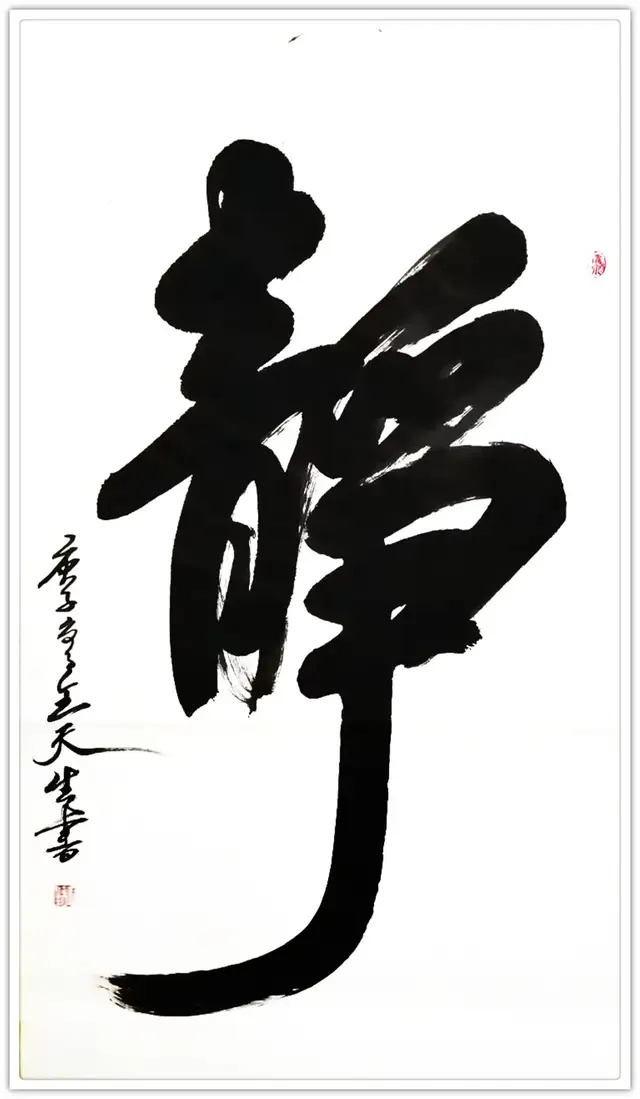 靜
庚子 王天生書